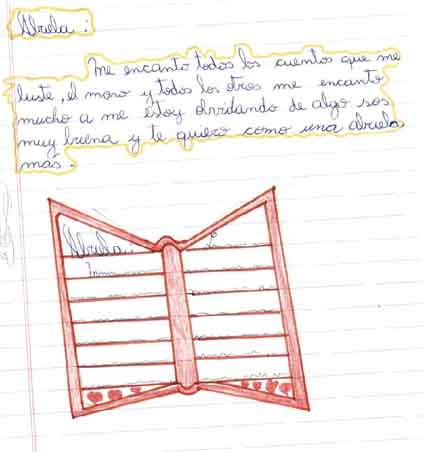 Abuela:
Me encanto todos los cuentos que me
leiste, el mono y todos los otros me encanto
mucho a me estoy olvidando de algo sos
muy buena y te quiero como una abuela
más.
Abuela: